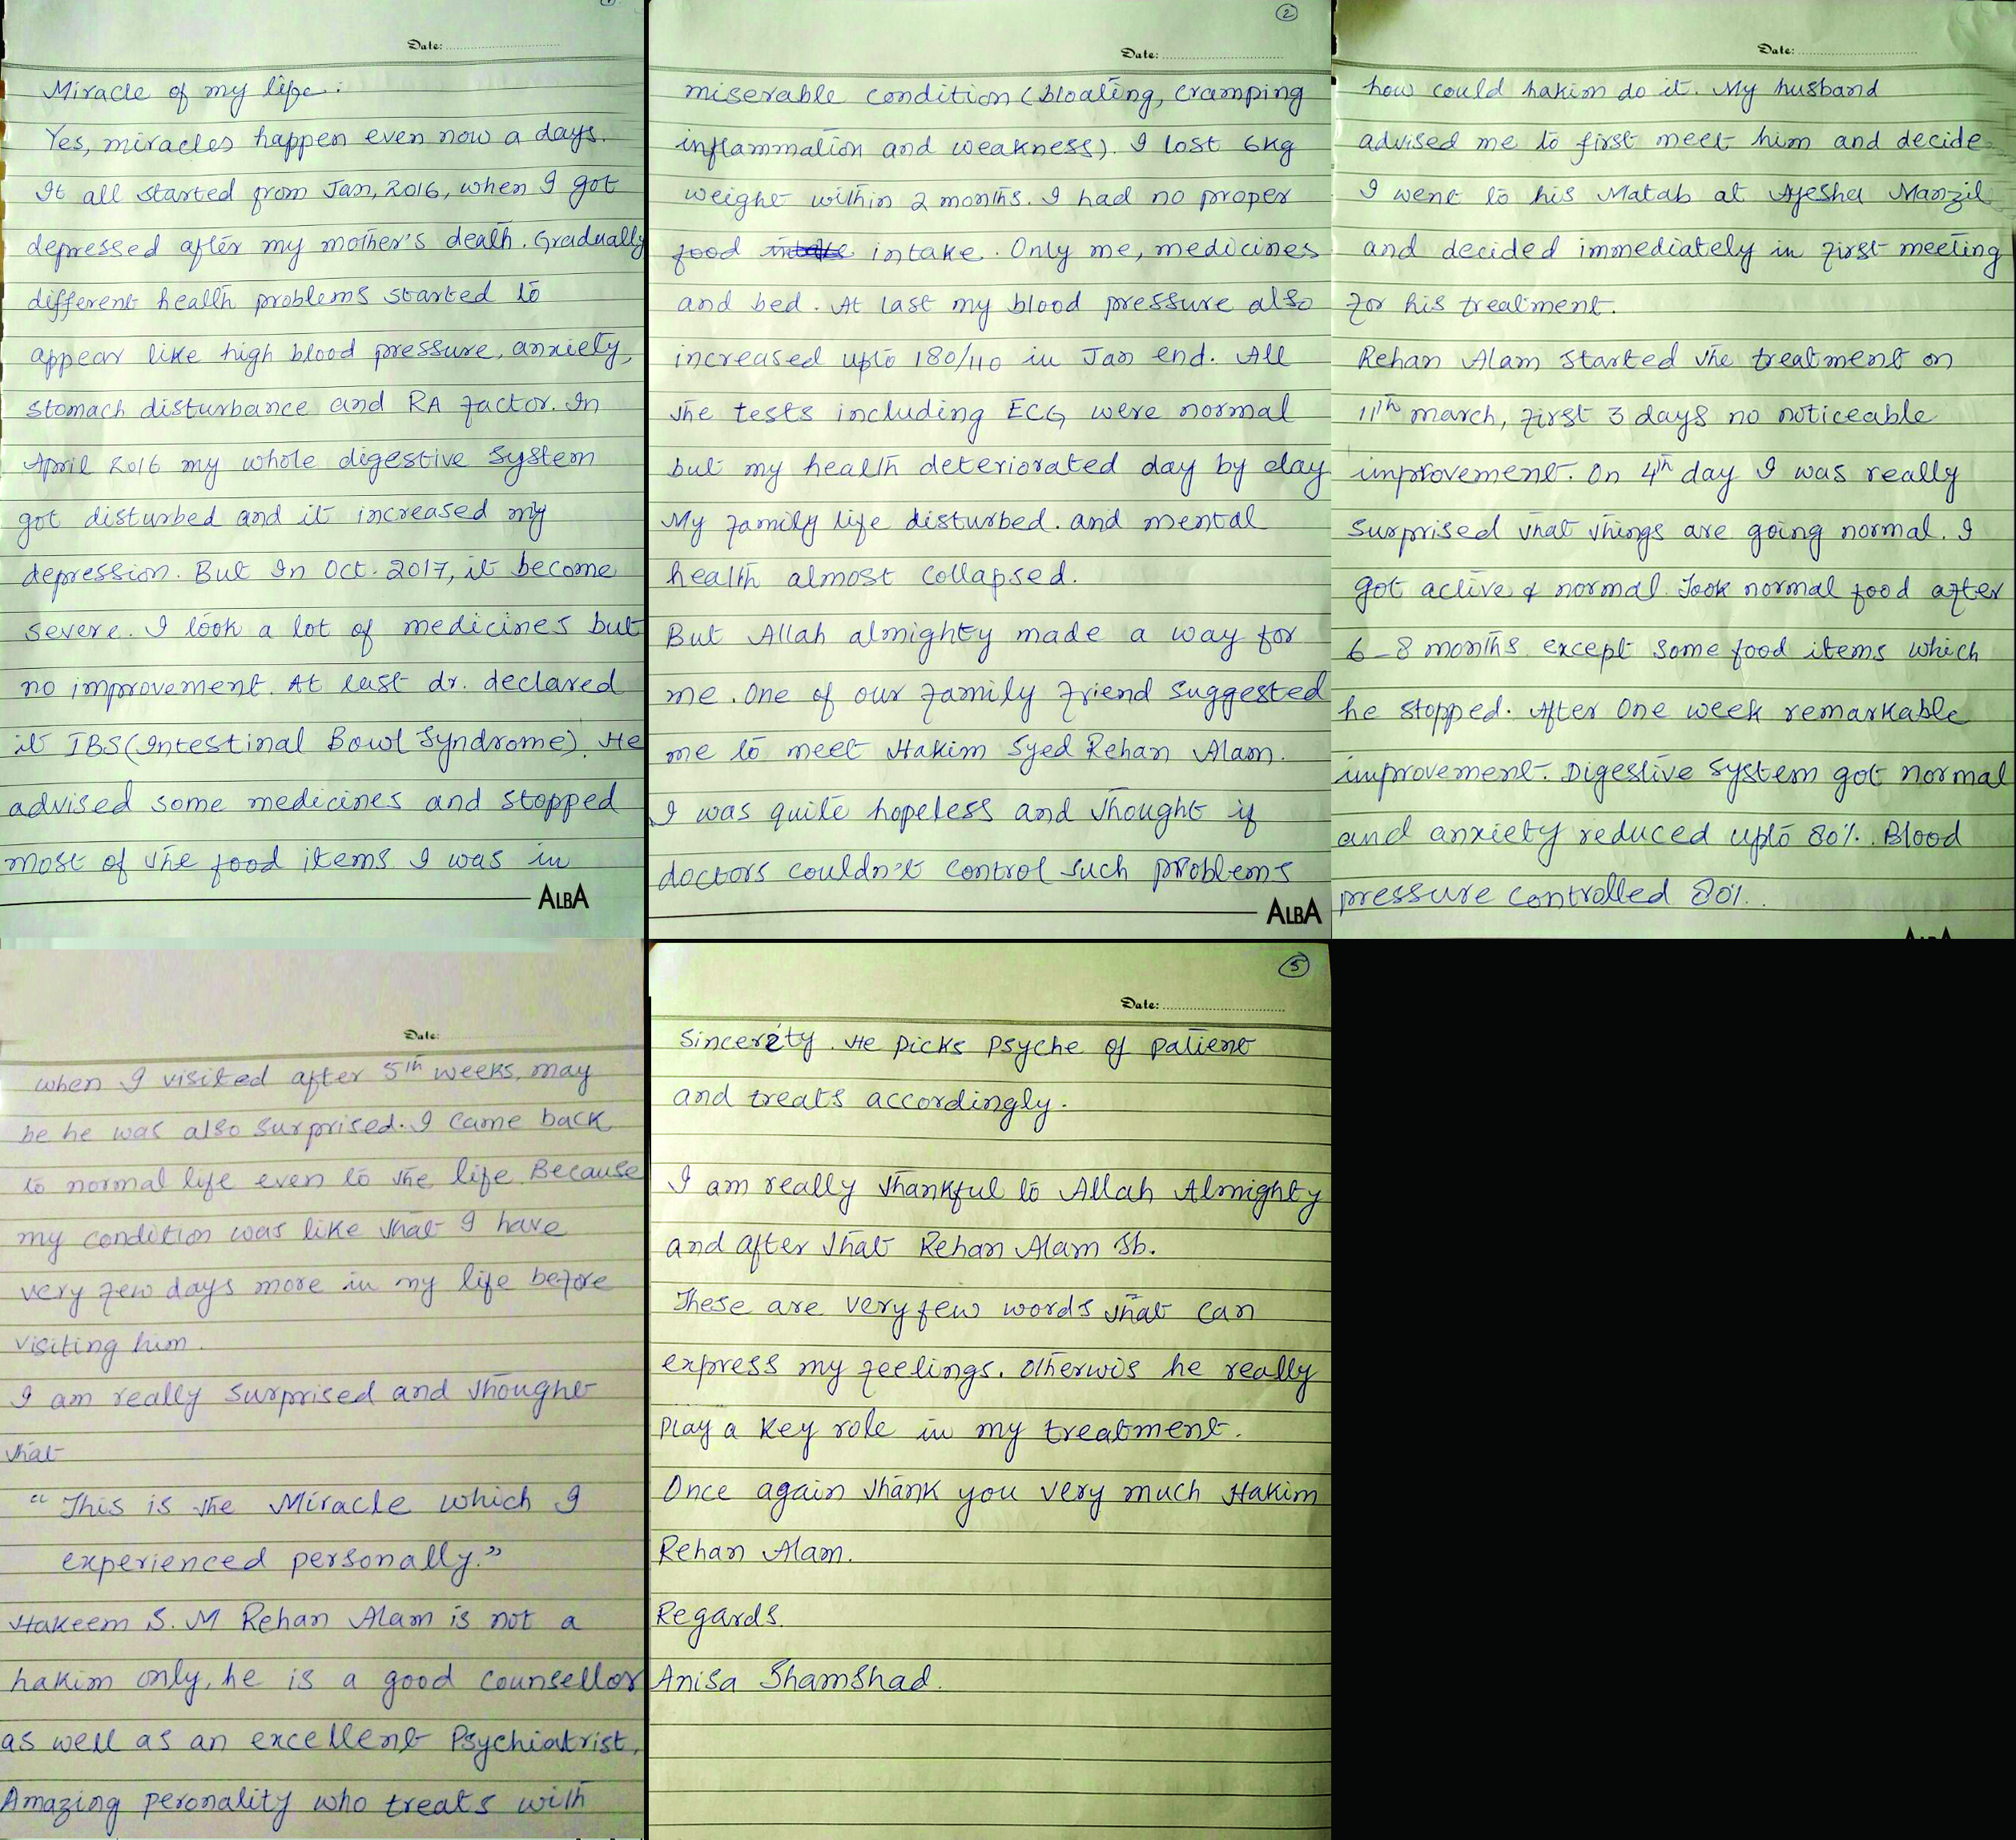 Date:
Miracle of my life:
Yes, miracles happen even now a days.
It all started from Jan, 2016, when I got
depressed after my mother's death. Gradually
different health problems started to
appear like high blood pressure, anxiety,
stomach disturbance and RA factor. In
April 2016 my whole digestive system
got disturbed and it increased my
depression. But In Oct. 2017, it become
severe. I took a lot of medicines but
no improvement. At last dr. declared
it IBS (Intestinal Bowl Syndrome). He
advised some medicines and stopped
most of the food items I was in
ALBA
2
Date:
miserable condition (bloating, cramping
inflammation and weakness). I lost 6kg
weight within 2 months. I had no proper
food intake intake. Only me, medicines
and bed. At last my blood pressure also
increased upto 180/110 in Jan end. All
the tests including ECG were normal
but my health deteriorated day by day
My family life disturbed. and mental
health almost collapsed.
But Allah almighty made a way for
me. One of our family friend suggested
me to meet Hakim Syed Rehan Alam.
I was quite hopeless and thought if
doctors couldn't control such problems
ALBA
Date:
how could hakim do it. My husband
advised me to first meet him and decide
I went to his Matab at Ayesha Manzil
and decided immediately in first meeting
for his treatment.
Rehan Alam started the treatment on
11th march, first 3 days no noticeable
improvement. On 4th day I was really
surprised that things are going normal. I
got active & normal. Took normal food after
6-8 months except some food items which
he stopped. After One week remarkable
improvement. Digestive system got normal
and anxiety reduced upto 80%. Blood
pressure controlled 80%.
Date:
when I visited after 5th weeks, may
be he was also surprised. I came back
to normal life even to the life. Because
my condition was like that I have
very few days more in my life before
visiting him.
I am really surprised and thought
that
"This is the Miracle which I
experienced personally."
Hakeem S. M Rehan Alam is not a
hakim only, he is a good counsellor
as well as an excellent Psychiatrist,
Amazing peronality who treats with
5
Date:
sincerity. He picks psyche of patient
and treats accordingly.
I am really thankful to Allah Almighty
and after that Rehan Alam Sb.
These are very few words that can
express my feelings. Otherwis he really
play a key role in my treatment.
Once again thank you very much Hakim
Rehan Alam.
Regards.
Anisa Shamshad.